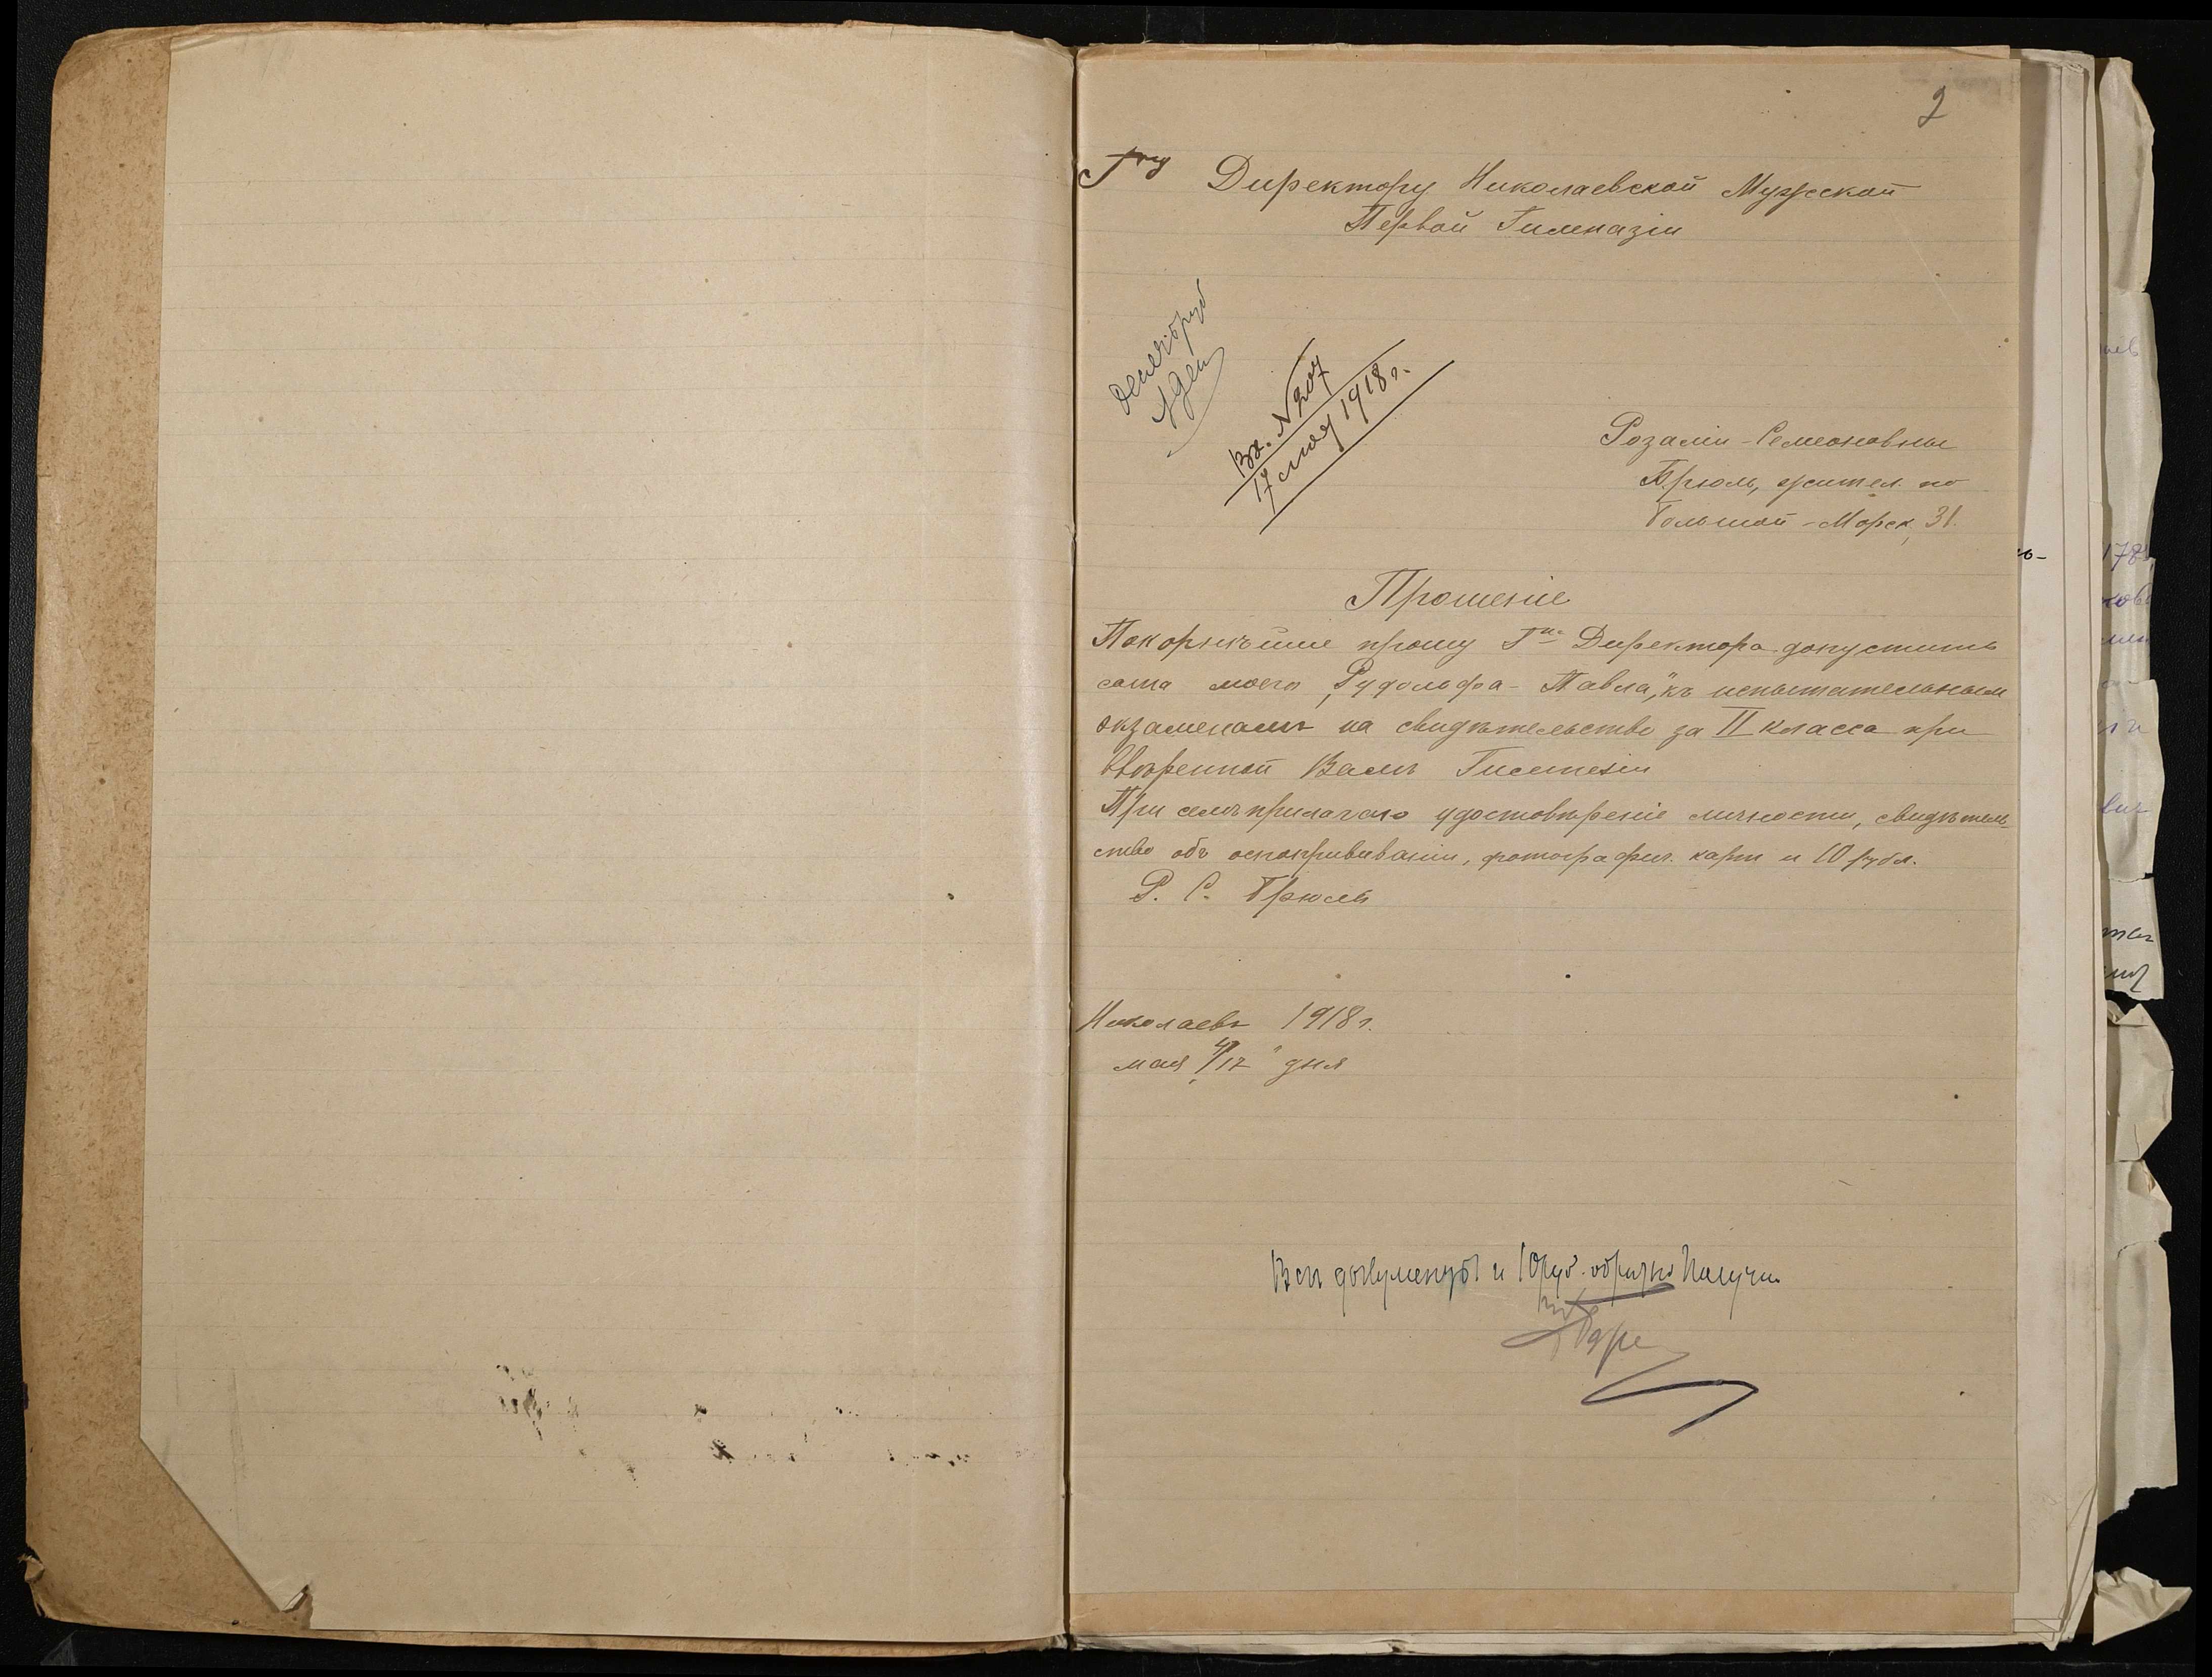 2
Гну Директору Николаевской Мужской
Первой Гимназіи
Вх. N 207
17 мая 1918 г.
Розаліи-Семеоновны
Брюль, жител. по
Большой-Морск, 31.
Прошеніе
Покорнѣйше прошу Гна Директора допустить
сына моего „Рудольфа-Павла," къ испытательным
экзаменамъ на свидѣтельство за II класса при
ввѣренной Вамъ Гимназіи
При семъ прилагаю удостовѣреніе личности, свидѣтель-
ство объ оспопрививаніи, фотографич. карт и 10 рубл.
Р. С. Брюль
Николаевъ 1918 г.
мая „4/17" дня
Всѣ документы и 10 руб. обратно получи